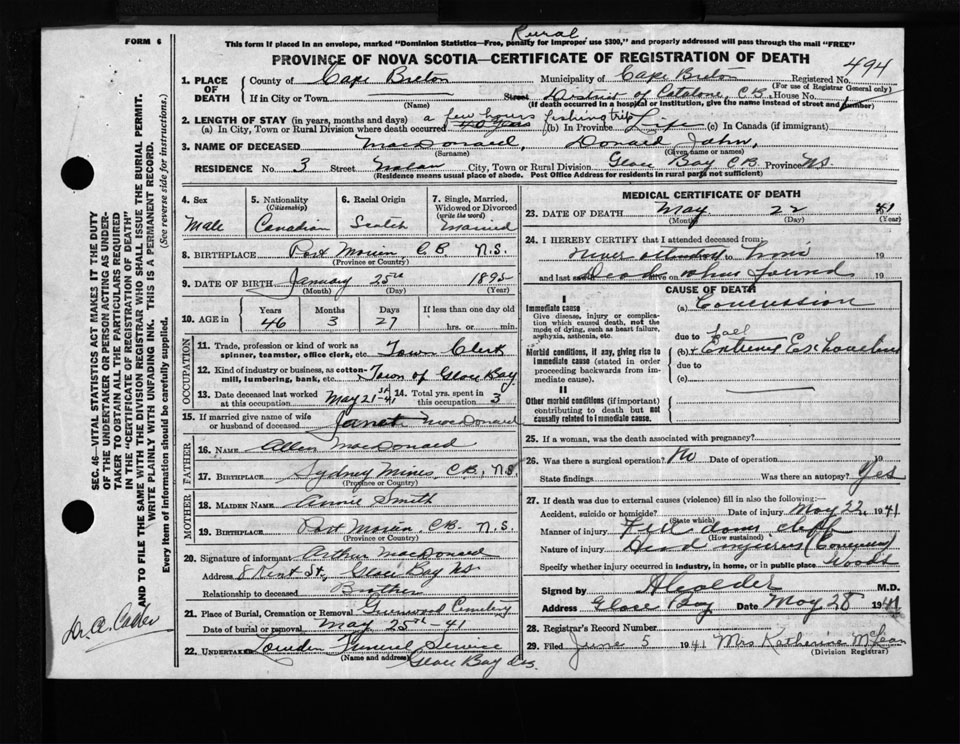 FORM 6
This form if placed in an envelope, marked "Dominion Statistics—Free, penalty for improper use $300," and properly addressed will pass through the mail "FREE"
Rural
PROVINCE OF NOVA SCOTIA—CERTIFICATE OF REGISTRATION OF DEATH
494
1. PLACE OF DEATH
County of Cape Breton
Municipality of Cape Breton
Registered No.
(For use of Registrar General only)
If in City or Town
(Name)
Street District of Catalone, C.B. House No.
(If death occurred in a hospital or institution, give the name instead of street and number)
2. LENGTH OF STAY (in years, months and days) a few hours fishing trip
(a) In City, Town or Rural Division where death occurred
(b) In Province Life (c) In Canada (if immigrant)
3. NAME OF DECEASED MacDonald, Donald John,
(Surname) (Given name or names)
RESIDENCE No. 3 Street Nolan City, Town or Rural Division Glace Bay C.B. Province N.S.
(Residence means usual place of abode. Post Office Address for residents in rural parts not sufficient)
4. Sex
Male
5. Nationality (Citizenship)
Canadian
6. Racial Origin
Scotch
7. Single, Married, Widowed or Divorced (write the word)
Married
8. BIRTHPLACE Port Morien, C.B. N.S.
(Province or Country)
9. DATE OF BIRTH January 25th 1895
(Month) (Day) (Year)
10. AGE in
Years Months Days If less than one day old
46 3 27 hrs. or min.
OCCUPATION
11. Trade, profession or kind of work as spinner, teamster, office clerk, etc. Town Clerk
12. Kind of industry or business, as cotton-mill, lumbering, bank, etc. Town of Glace Bay
13. Date deceased last worked at this occupation May 21st-41
14. Total yrs. spent in this occupation 3
15. If married give name of wife or husband of deceased Janet MacDonald
FATHER
16. NAME Allen MacDonald
17. BIRTHPLACE Sydney Mines, C.B., N.S.
(Province or Country)
MOTHER
18. MAIDEN NAME Annie Smith
19. BIRTHPLACE Port Morien, C.B. N.S.
(Province or Country)
20. Signature of informant Arthur MacDonald
Address 8 Kent St., Glace Bay N.S.
Relationship to deceased Brother
21. Place of Burial, Cremation or Removal Greenwood Cemetery
Date of burial or removal May 25th-41
22. UNDERTAKER Funeral Service
(Name and address) Glace Bay N.S.
MEDICAL CERTIFICATE OF DEATH
23. DATE OF DEATH May 22 41
(Month) (Day) (Year)
24. I HEREBY CERTIFY that I attended deceased from:
Never attended to him 19
and last saw alive on 19
Dead when found
CAUSE OF DEATH
I
Immediate cause
Give disease, injury or complication which caused death, not the mode of dying, such as heart failure, asphyxia, asthenia, etc.
(a) Concussion
due to fall
Morbid conditions, if any, giving rise to immediate cause (stated in order proceeding backwards from immediate cause).
(b) + Extreme
due to
(c)
II
Other morbid conditions (if important) contributing to death but not causally related to immediate cause.
25. If a woman, was the death associated with pregnancy?
26. Was there a surgical operation? No Date of operation
State findings Was there an autopsy? Yes
27. If death was due to external causes (violence) fill in also the following:—
Accident, suicide or homicide? Date of injury May 22, 1941
(State which)
Manner of injury Fell down cliff
(How sustained)
Nature of injury Head injuries
Specify whether injury occurred in industry, in home, or in public place Woods
Signed by A Calder M.D.
Address Glace Bay Date May 28 1941
28. Registrar's Record Number
29. Filed June 5 1941 Mrs Katherine McLean
(Division Registrar)
SEC. 46—VITAL STATISTICS ACT MAKES IT THE DUTY
OF THE UNDERTAKER OR PERSON ACTING AS UNDERTAKER
TO OBTAIN ALL THE PARTICULARS REQUIRED
IN THE "CERTIFICATE OF REGISTRATION OF DEATH"
AND TO FILE THE SAME WITH THE DIVISION REGISTRAR WHO SHALL ISSUE THE BURIAL PERMIT.
WRITE PLAINLY WITH UNFADING INK. THIS IS A PERMANENT RECORD.
Every item of information should be carefully supplied. (See reverse side for instructions.)
Dr. A. Calder